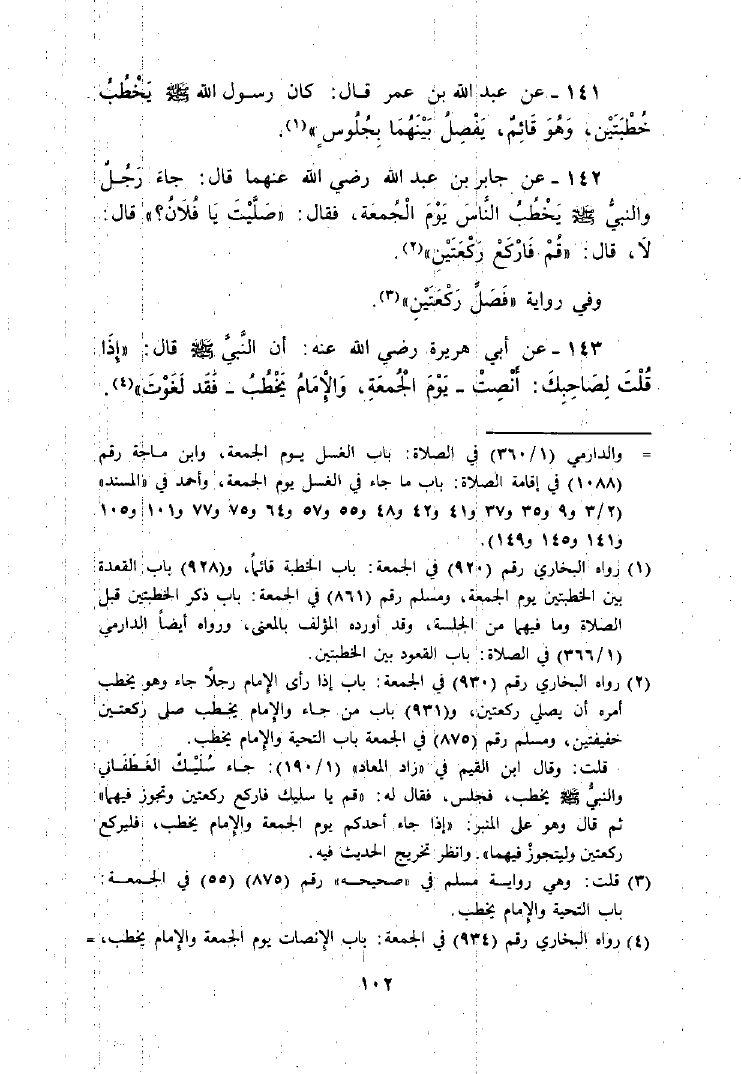 ١٤١ ـ عن عبد الله بن عمر قال: كان رسول الله ﷺ يَخْطُبُ
خُطْبَتَيْنِ، وَهُوَ قَائِمٌ، يَفْصِلُ بَيْنَهُمَا بِجُلُوسٍ»(١).
١٤٢ ـ عن جابر بن عبد الله رضي الله عنهما قال: جاءَ رَجُلٌ
والنبيُّ ﷺ يَخْطُبُ النَّاسَ يَوْمَ الْجُمعَة، فقال: «صَلَّيْتَ يَا فُلَانُ؟» قال:
لَا، قال: «قُمْ فَارْكَعْ رَكْعَتَيْنِ»(٢).
وفي رواية «فَصَلِّ رَكْعَتَيْنِ»(٣).
١٤٣ ـ عن أبي هريرة رضي الله عنه: أن النَّبيَّ ﷺ قال: «إِذَا
قُلْتَ لِصَاحِبِكَ: أَنْصِتْ ـ يَوْمَ الْجُمعَةِ، وَالْإِمَامُ يَخْطُبُ ـ فَقَد لَغَوْتَ»(٤).
= والدارمي (١/ ٣٦٠) في الصلاة: باب الغسل يـوم الجمعة، وابن مـاجة رقم
(١٠٨٨) في إقامة الصلاة: باب ما جاء في الغسل يوم الجمعة، وأحمد في «المسند»
(٢/ ٣ و٩ و٣٥ و٣٧ و٤١ و٤٢ و٤٨ و٥٥ و٥٧ و٦٤ و٧٥ و٧٧ و١٠١ و١٠٥
و١٤١ و١٤٥ و١٤٩).
(١) رواه البخاري رقم (٩٢٠) في الجمعة: باب الخطبة قائماً، و(٩٢٨) باب القعدة
بين الخطبتين يوم الجمعة، ومسلم رقم (٨٦١) في الجمعة: باب ذكر الخطبتين قبل
الصلاة وما فيهما من الجلسة، وقد أورده المؤلف بالمعنى، ورواه أيضاً الدارمي
(١/ ٣٦٦) في الصلاة: باب القعود بين الخطبتين.
(٢) رواه البخاري رقم (٩٣٠) في الجمعة: باب إذا رأى الإمام رجلًا جاء وهو يخطب
أمره أن يصلي ركعتين، و(٩٣١) باب من جـاء والإمام يخـطب صلى ركعتـين
خفيفتين، ومسلم رقم (٨٧٥) في الجمعة باب التحية والإمام يخطب.
قلت: وقال ابن القيم في «زاد المعاد» (١/ ١٩٠): جـاء سُلَيْكٌ الغَطَفَاني
والنبيُّ ﷺ يخطب، فجلس، فقال له: «قم يا سليك فاركع ركعتين وتجوز فيهما»
ثم قال وهو على المنبر: «إذا جاء أحدكم يوم الجمعة والإمام يخطب، فليركع
ركعتين وليتجوزْ فيهما». وانظر تخريج الحديث فيه.
(٣) قلت: وهي روايـة مسلم في «صحيحـه» رقم (٨٧٥) (٥٥) في الجـمعـة:
باب التحية والإمام يخطب.
(٤) رواه البخاري رقم (٩٣٤) في الجمعة: باب الإنصات يوم الجمعة والإمام يخطب، =
١٠٢